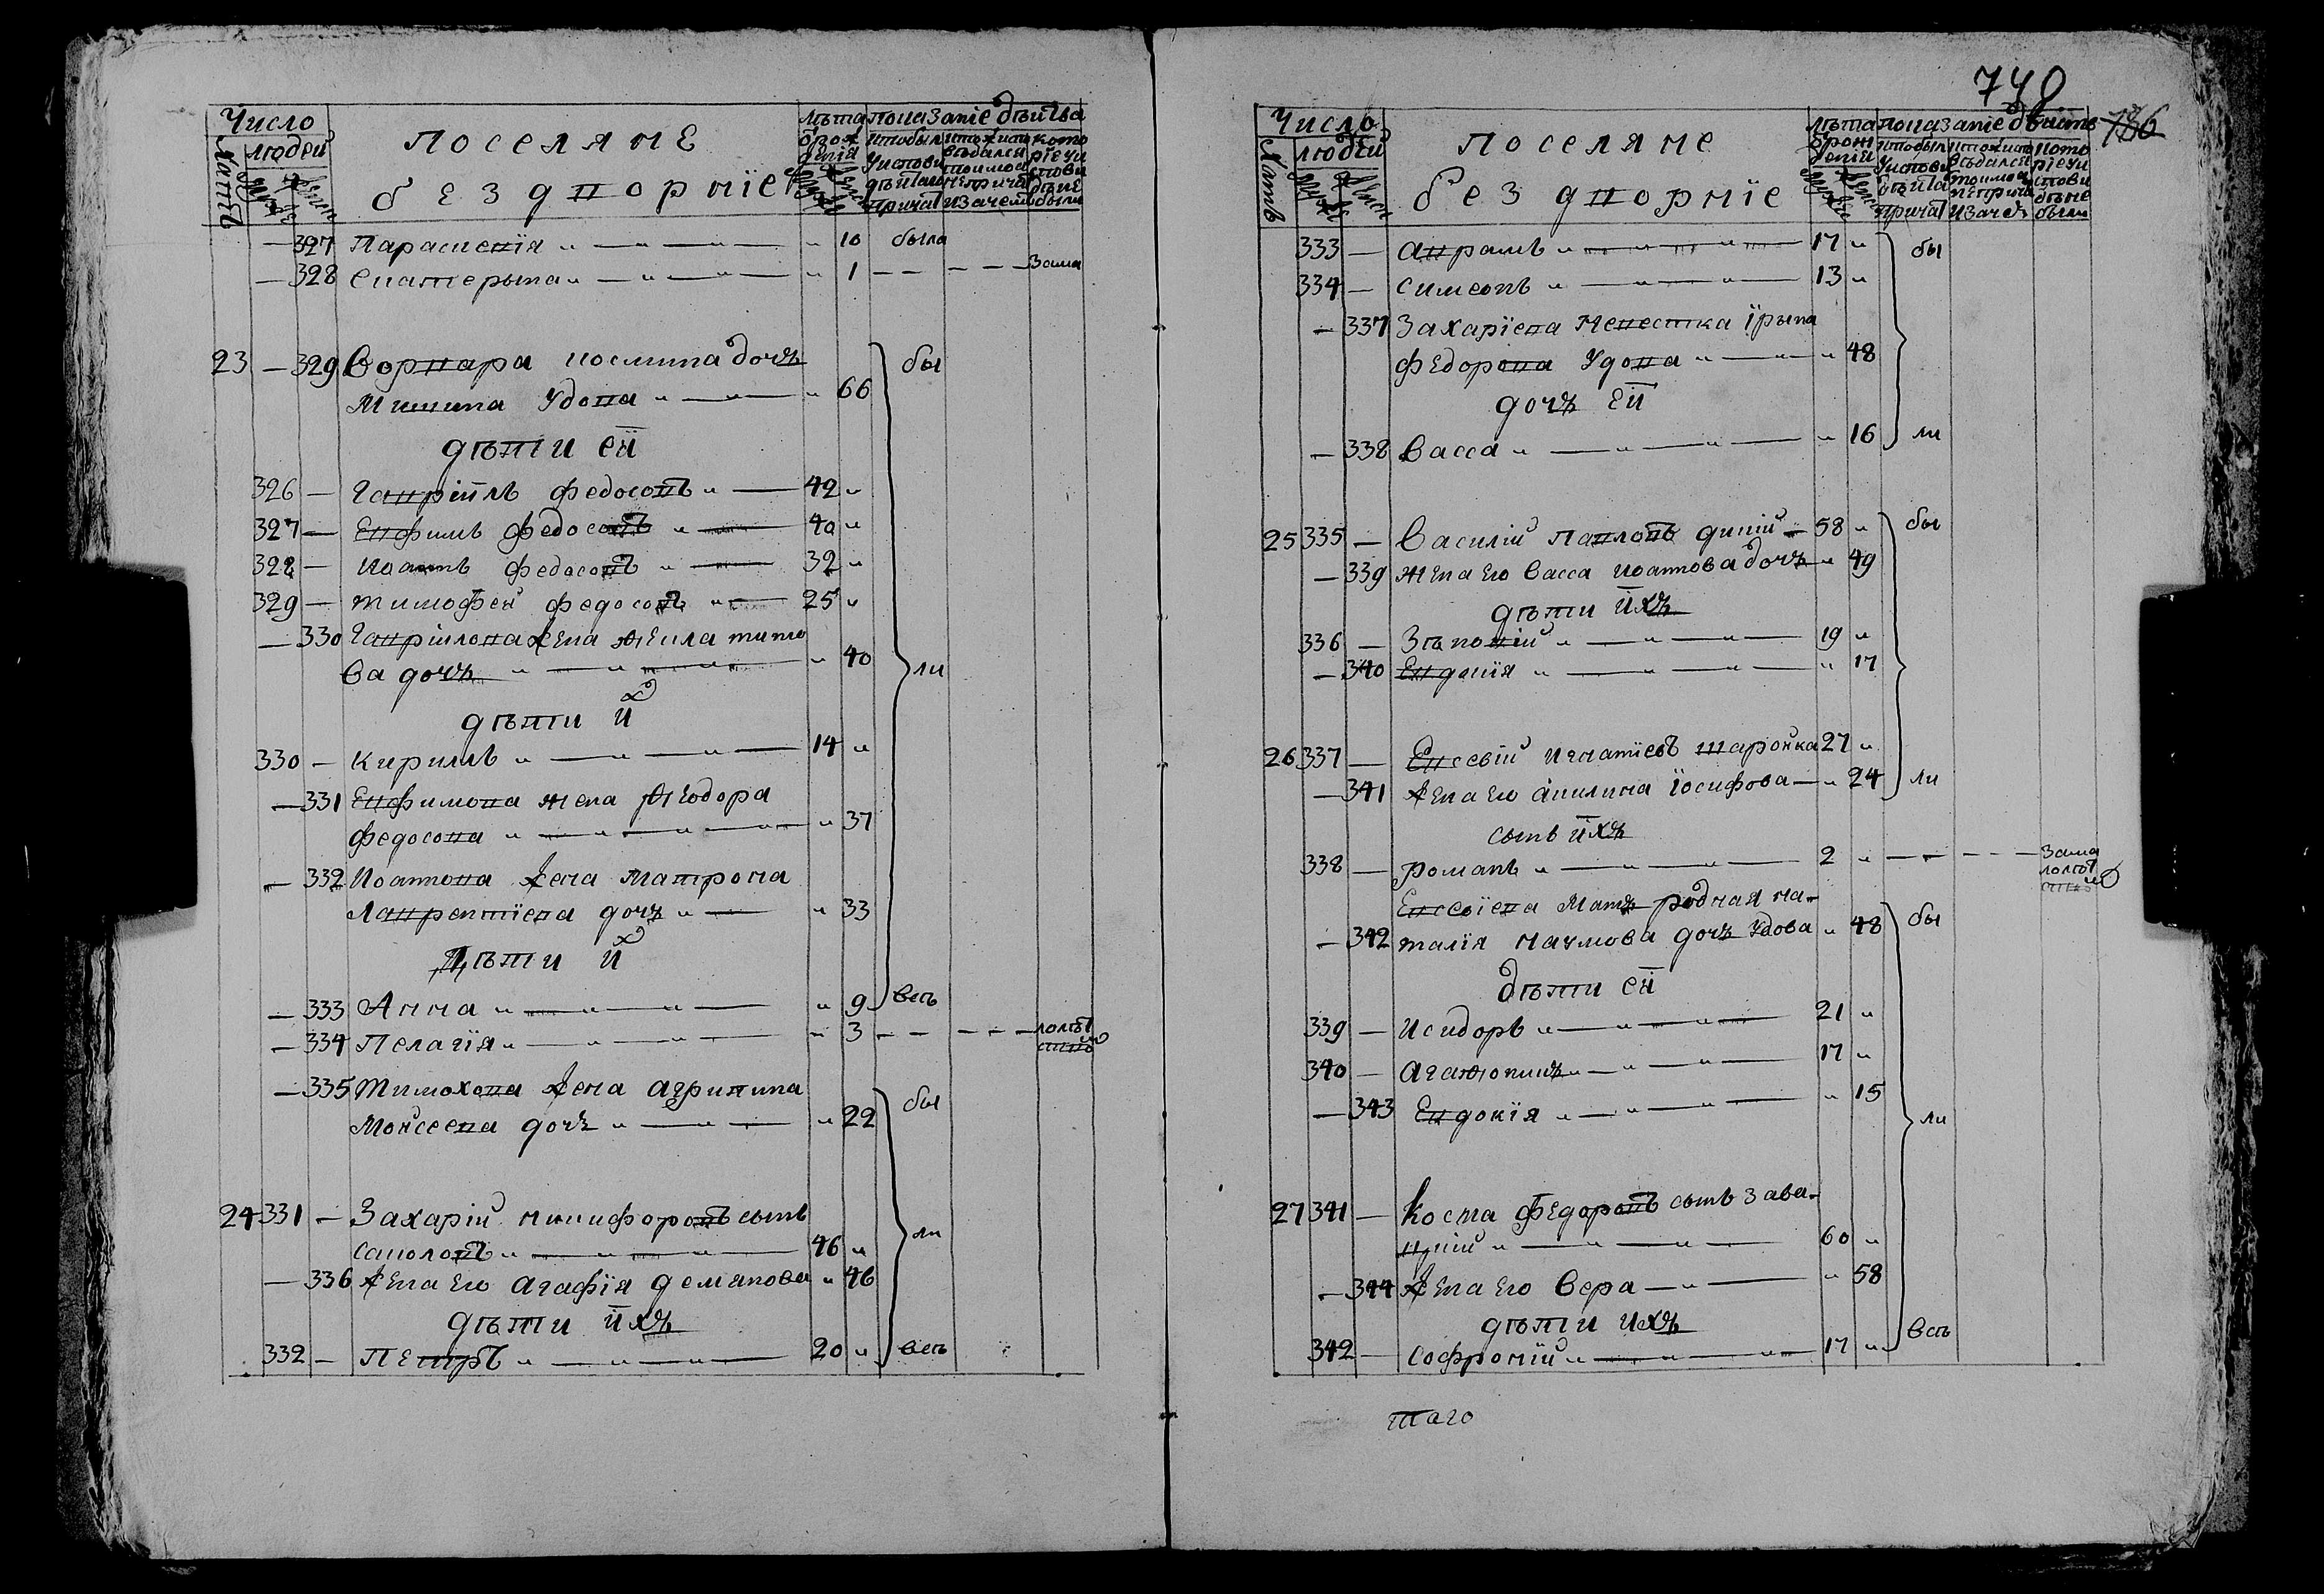 Число
людей
поселяне
бездворніе
лѣта
показаніе
327 Параскевія 10 была
328 Екатерына 1 Зама
23 329 Варвара космина дочъ бы
Мишина Удова 66
дѣти ей
326 Гавріилъ федосовъ 42
327 Евфимъ федосовъ 40
328 Иоаннъ федосовъ 32
329 тимофей федосовъ 25
330 Гавріилова жена
ва дочъ 40 ли
дѣти их
330 кирилъ 14
331 Евфимова жена феодора
федосова 37
332 Иоаннова жена Матрона
Лаврентіева дочъ 33
Дѣти их
333 Анна 9 весь
334 Пелагія 3
335 Тимохова жена агрипина бы
Мойсеева дочъ 22
24 331 Захарій никифоровъ сынъ
саколовъ 46 ли
336 жена его агафія демянова 46
дѣти ихъ
332 Петръ 20 весь
740
736
Число
людей
поселяне
бездворніе
лѣта
показаніе
333 аврамъ 17 бы
334 симеонъ 13
337 Захаріева невестка Їрына
федорова Удова 48
дочъ ей
338 Васса 16 ли
25 335 Василій павловъ дикій 58 бы
339 жена его Васса иоаннова дочъ 49
дѣти ихъ
336 Зѣновій 19
340 Евдокія 17
26 337 Евсевій игнатіевъ шаройка 27
341 жена его акилина Їосифова 24 ли
сынъ ихъ
338 романъ 2 Зама
Евсевіева Матъ родная на-
342 талія наумова дочъ Удова 48 бы
дѣти ей
339 Исидоръ 21
340 агафоникъ 17
343 Евдокія 15
ли
27 341 Косма федоровъ сынъ Зава-
цкій 60
344 жена его Вера 58
дѣти ихъ
342 софроній 17 весь
таго